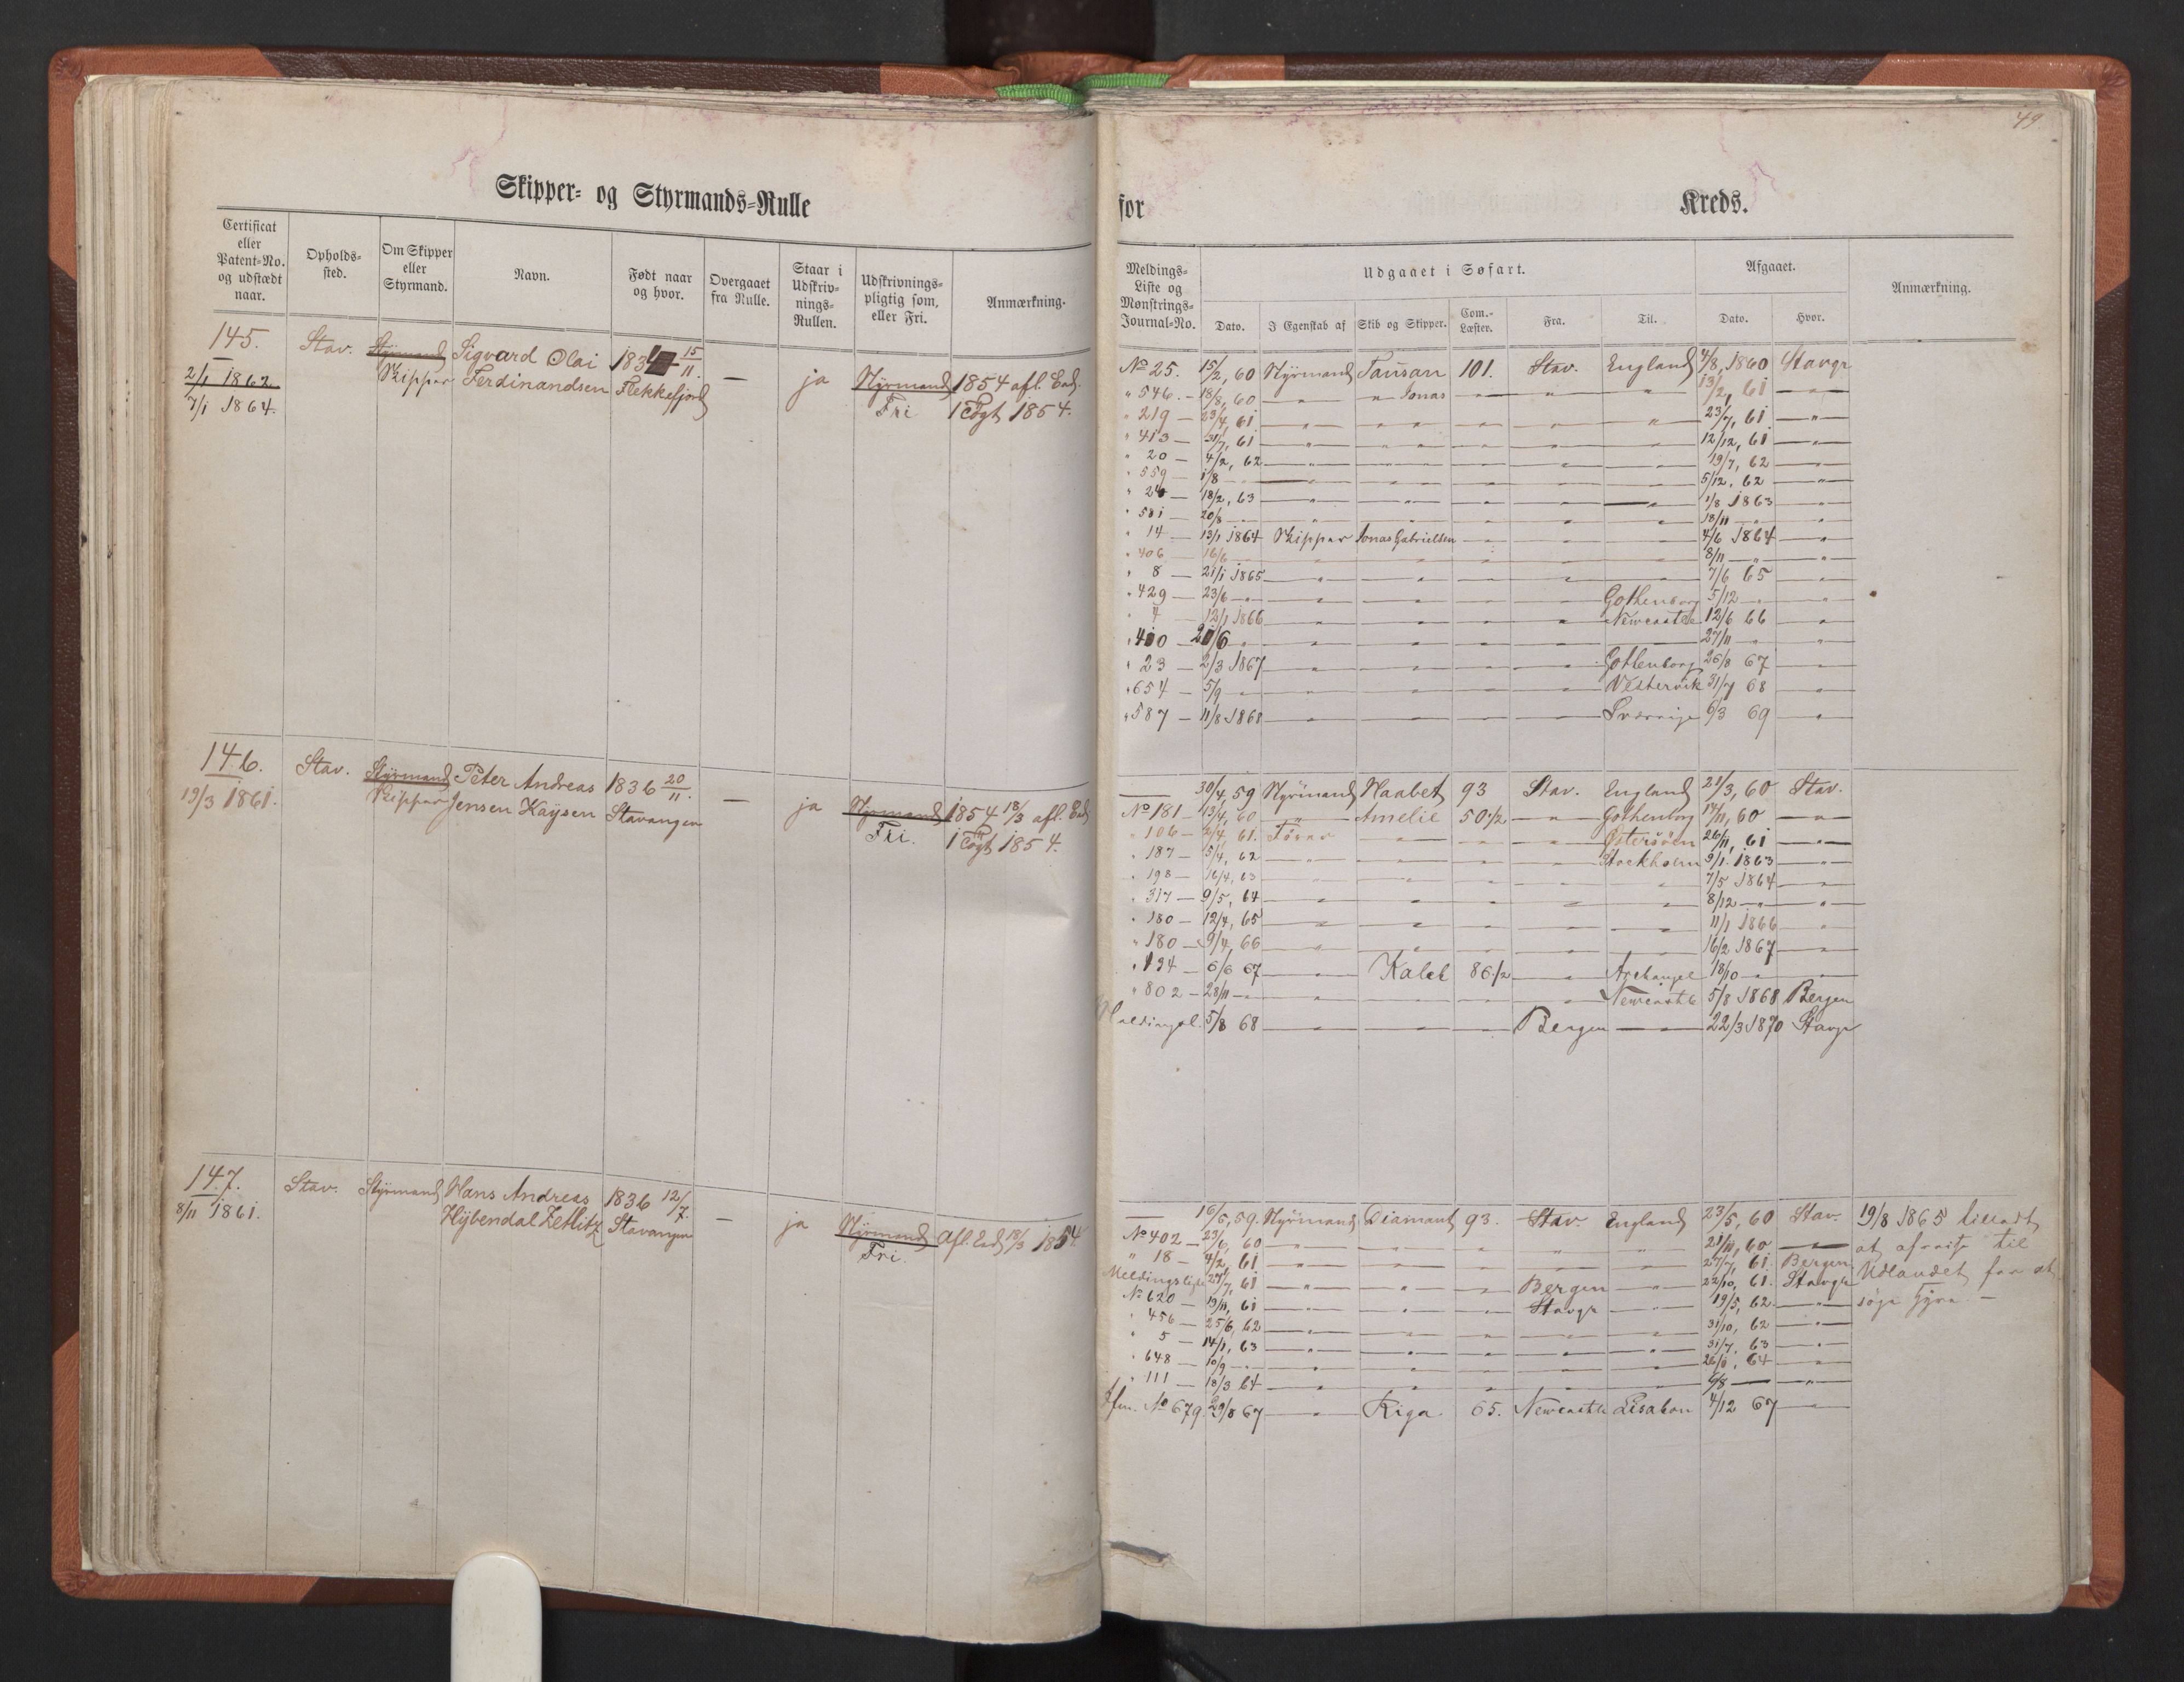 49.
Skipper- og Styrmands-Rulle
for Kreds.
Certificat eller Patent-No. og udstædt naar.
Opholds-sted.
Om Skipper eller Styrmand.
Navn.
Født naar og hvor.
Overgaaet fra Rulle.
Staar i Udskriv-nings-Rullen.
Udskrivnings-pligtig som, eller Fri.
Anmærkning.
145. Stav. Styrmand Sigvard Olai 183 15/11. — ja Styrmand 1854 afl. Eed.
2/1 1862 Skipper Ferdinandsen Flekkefjord Fri 1 Togt 1854.
7/1 1864.
146. Stav. Styrmand Peter Andreas 1836 20/11. — ja Styrmand 1854 18/3 afl. Eed
19/3 1861. Skipper Jensen Kaysen Stavanger Fri. 1 Togt 1854.
147. Stav. Styrmand Hans Andreas 1836 12/7. — ja Styrmand Afl. Eed 18/3 1854.
8/11 1861. Hybendal Zetlitz Stavanger Fri.
Meldings-Liste og Mønstrings-Journal-No.
Udgaaet i Søfart.
Afgaaet.
Anmærkning.
Dato. I Egenskab af Skib og Skipper. Com.-Læster. Fra. Til. Dato. Hvor.
No 25. 15/2, 60 Styrmand Tausan 101. Stav. England 4/8, 1860 Stavgr
" 546. - 18/8, 60 — " Jonas — " " 13/2, 61 —
" 219 — 23/4, 61 — " — " — " 23/7, 61. — " —
" 413 — 31/7, 61 — " — " — " 12/12, 61 — " —
" 20 — 4/2, 62 — " — " — " 19/7, 62 — " —
" 559 — 1/8 — " — " — " 5/12, 62 — " —
" 24 — 18/2, 63 — " — " — " 1/8 1863 — " —
" 581 — 20/8 — " — " — " 18/11 — " — "
" 14 — 13/1 1864 Skipper Jonas Gabrielsen — " — 4/6 1864 — " —
" 406 — 16/6 — " — " — " 8/11 — " — "
" 8 — 21/1 1865 — " — " — " 7/6 65 — " —
" 429 — 23/6 — " — " — " Gothenborg 5/12 — " — "
" 4 12/1 1866 — " — " — " Newcastle 12/6 66 — " —
" 410 — 21/6 " — " — " — " 27/11 — " — "
" 23 — 2/3 1867 — " — " — " Gothenborg 26/8 67 — " —
" 654 — 5/9 — " — " — " Vestervik 31/7 68 — " —
" 587 — 11/8 1868 — " — " — " Sverrige 6/3 69 — " —
— 30/4, 59 Styrmand Haabet 93 Stav. England 21/3, 60 Stav.
No 181 — 13/4, 60 — " — Amelie 50 1/2 — " — Gothenborg 17/11, 60 — " —
" 106 — 2/4, 61. Fører — " — " — Østersøen 26/11, 61 — " —
" 187 — 5/4, 62 — " — " — " Stockholm 9/1 1863 — " —
" 198 — 16/4, 63 — " — " — " 7/5 1864 — " —
" 317 — 9/5, 64 — " — " — " 8/12 — " — "
" 180 — 12/4, 65 — " — " — " 11/1 1866 "
" 180 — 9/4, 66 — " — " — " 16/2 1867 — " —
" 194 — 6/6 67 — " — Kaleb 86 1/2 — " — Archangel 18/10 — " — "
" 802 — 28/11 — " — " — " Newcastle 5/8 1868 Bergen
Meldingsl. 5/8 68 — " — " — Bergen — " — 22/3 1870 Stavgr
— 16/5, 59. Styrmand Diamant 93. Stav. England 23/5, 60 Stav. 19/8 1865 tilladt
No 402 — 23/6, 60 — " — " — " 21/11, 60 — " — at afreise til
" 18 — 4/2, 61 — " — " — " 27/7, 61. Bergen Udlandet for at
Meldingsliste 27/7, 61 — " — " — Bergen — " — 22/10, 61. Stavgr søge Hyre —
No 620 — 19/11, 61 — " — " — Stavgr — " — 19/5, 62 — " —
" 456 — 25/6, 62 — " — " — " 31/10, 62 — " —
" 5 — 14/1, 63 — " — " — " 31/7, 63 — " —
" 648 — 10/9 — " — " — " 26/1, 64 — " —
" 111 — 18/3 64 — " — " — " 6/8 — " —
No 679. 29/8 67 — " — Riga 65. Newcastle Lisabon 4/12 67 — " —